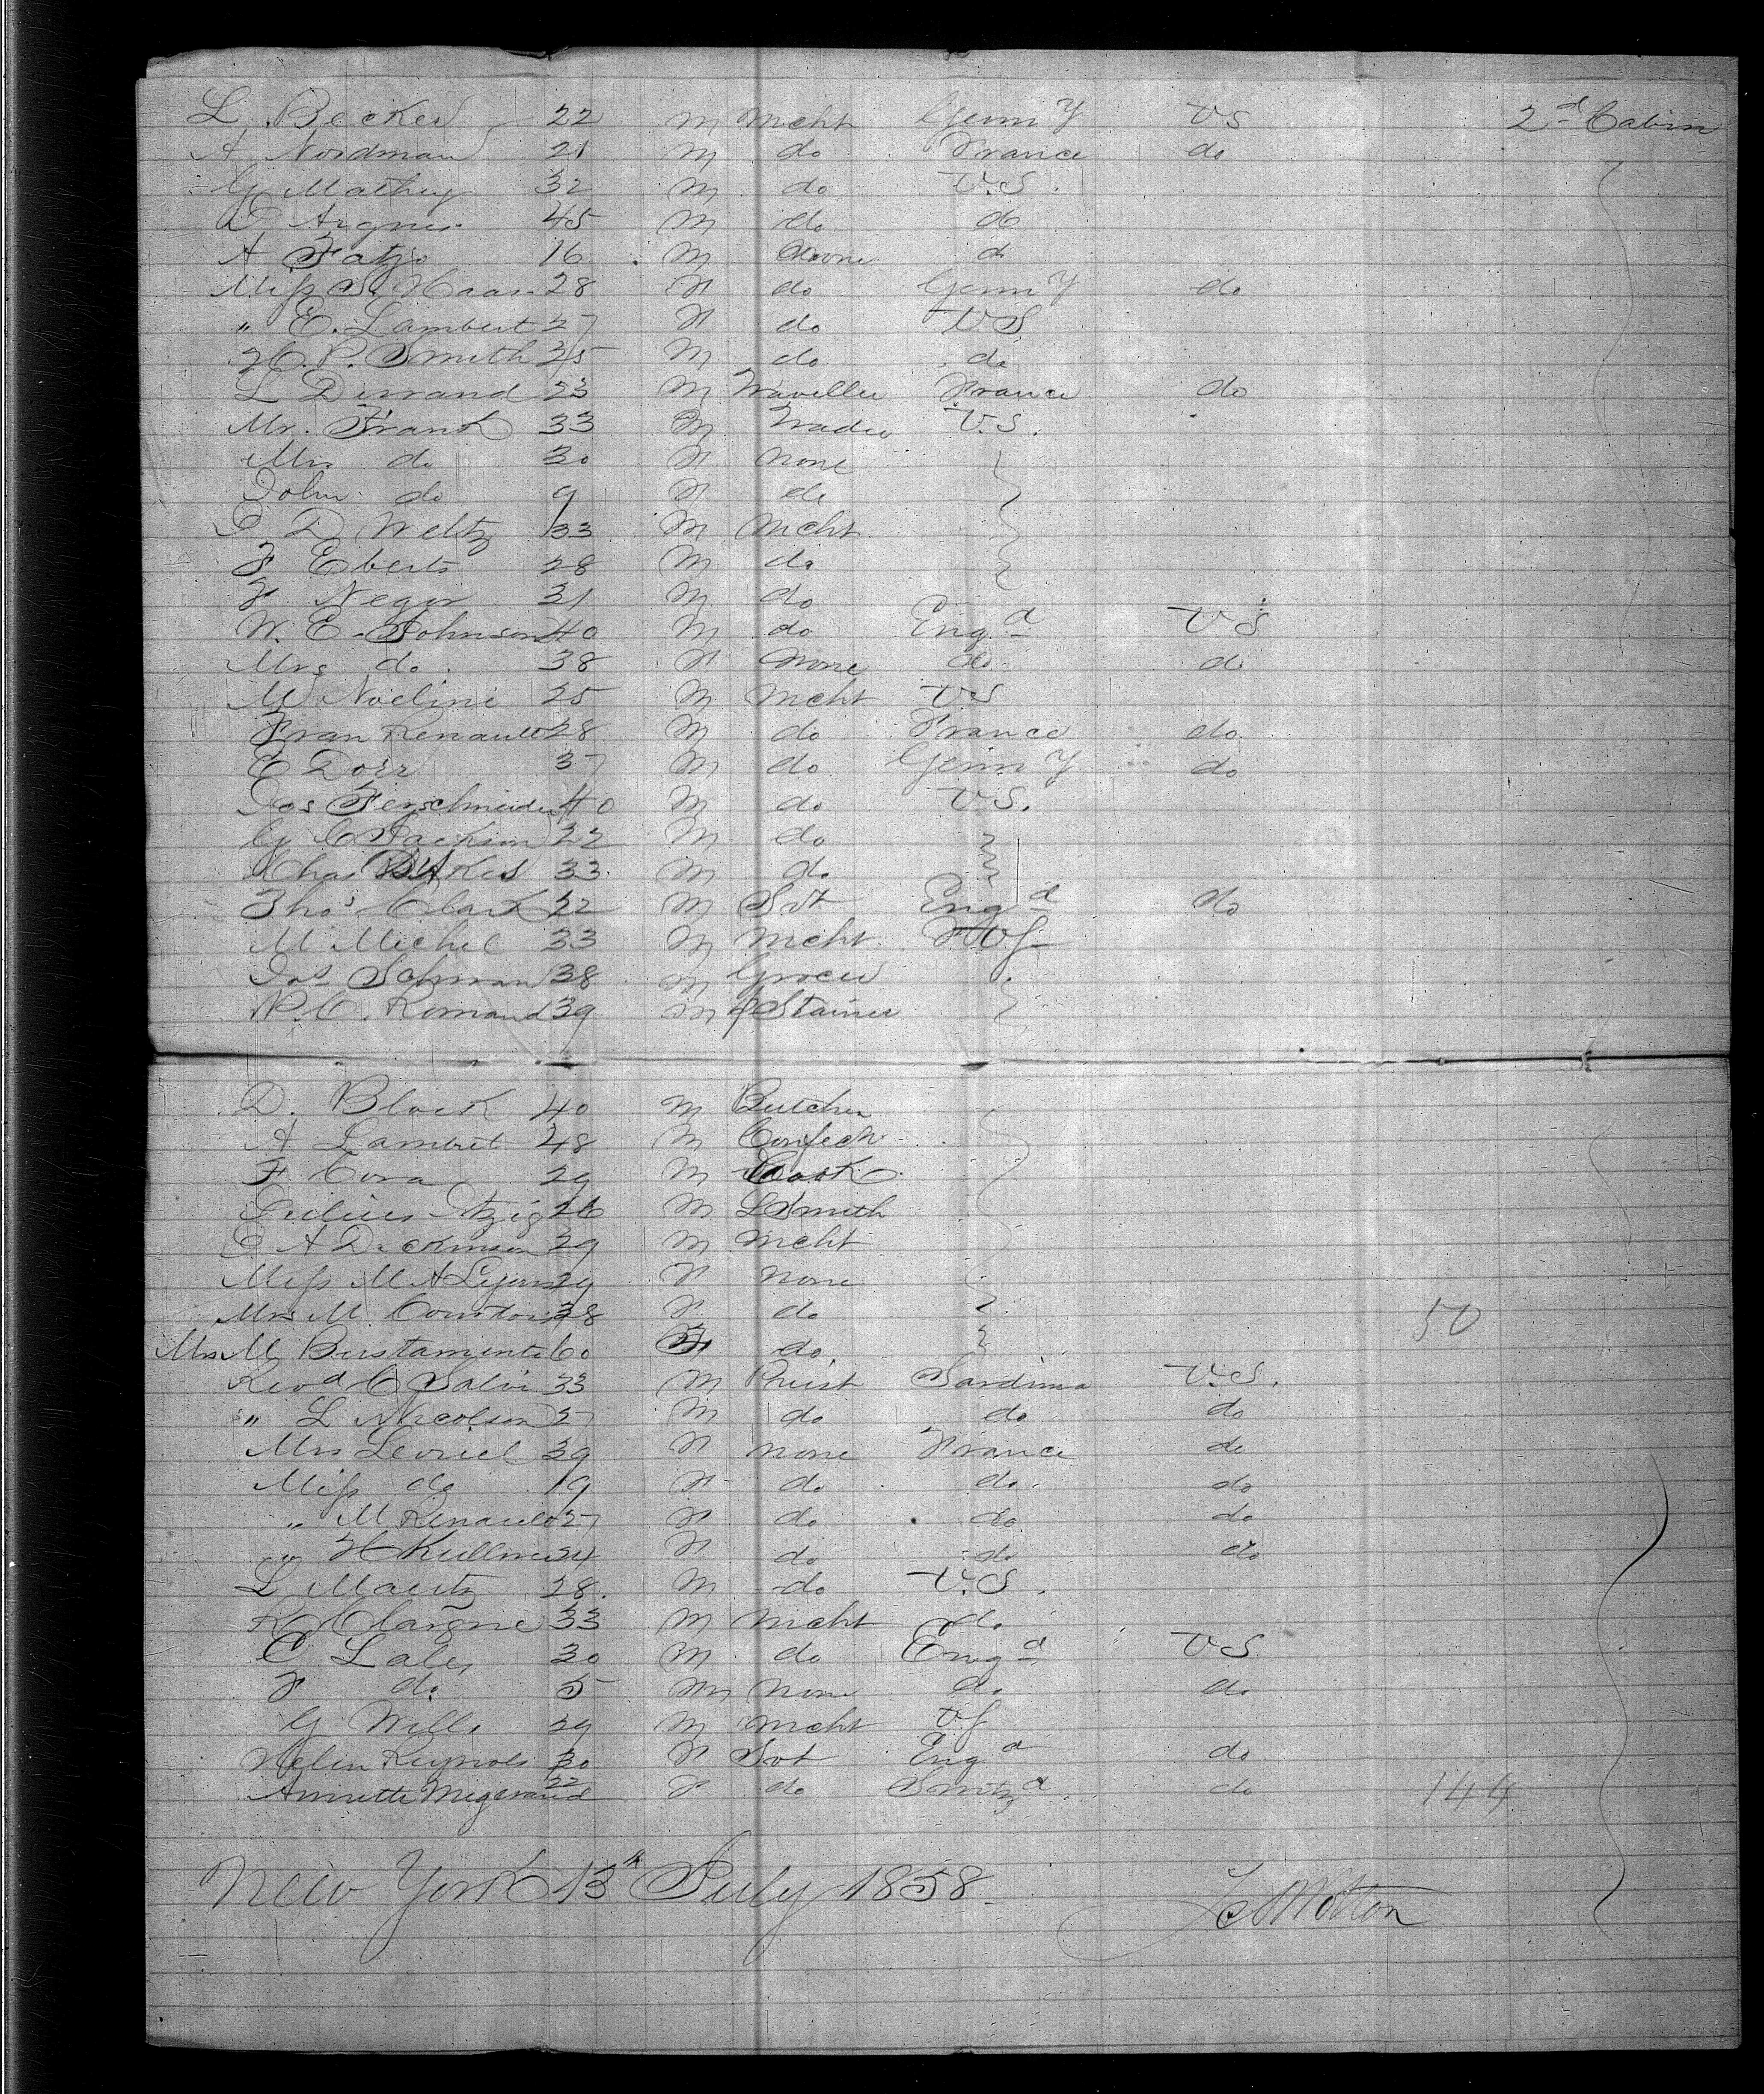 L Becker 22 m mcht Germy US 2nd Cabin
A Nordman 21 m do France do
G Mathey 32 m do U.S.
45 m do do
A Fatjo 16 m none do
Miss S. Haas 28 F do Germy do
" E. Lambert 27 F do US
H. P. Smith 25 m do do
L Durrand 23 m Traveller France do
Mr. Frank 33 m Trader U.S.
Mrs do 30 F none
John do 9 F do
D Weltz 33 m mcht
F Eberts 28 m do
F. Negor 31 m do
W. E. Johnson 40 m do Engd US
Mrs do 38 F none do do
M Noelini 25 m mcht US
Fran Renault 28 m do France do
E Dorr 37 m do Germy do
Jos Ferschneider 40 m do U.S.
G C Jackson 22 m do
Chas 33 m do
Thos Clark 22 m Svt Engd do
M Michel 33 m mcht US
Jos Sohman 38 m Grocer
P. C. Romand 39 m Stainer
D. Block 40 m Butcher
A Lambert 48 m Confectr
F Cora 29 m Cook
Itzig 26 m L Smith
E A Dickinson 29 m mcht
Miss M A Lyons 29 F none
Mrs M. 38 F do 50
Mrs M Bustamente 60 F do
Revd C Salvi 33 m Priest Sardinia U.S.
" L Nicolson 27 m do do do
Mrs Levriel 39 F none France do
Miss do 19 F do do do
" M Renault 27 F do do do
" H Kullmer 24 F do do do
L Mautz 28 m do U.S.
R Clargne 33 m mcht do
C Lales 30 m do Engd US
F do 5 m none do do
G Wills 29 m mcht US
Helen Reynols 30 F Svt Engd do
Annette Megeraud 22 F do Switzd do 144
New York 13th July 1858 Wotton